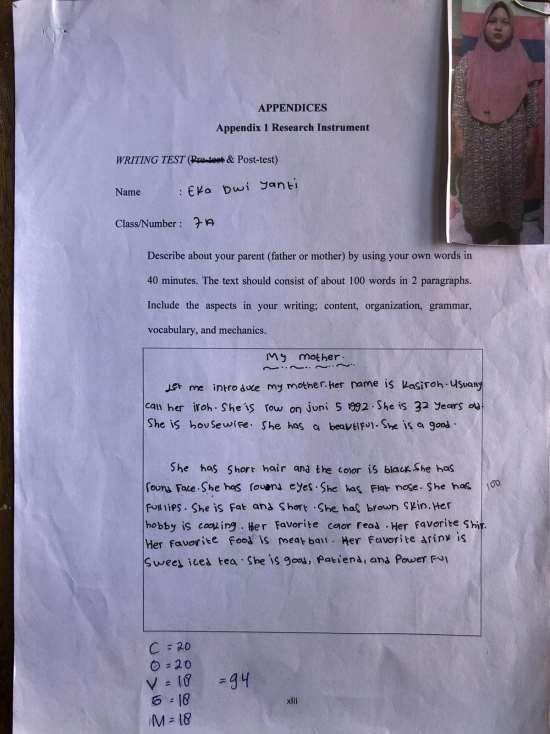 APPENDICES
Appendix 1 Research Instrument
WRITING TEST (Pre-test & Post-test)
Name : Eka Dwi Yanti
Class/Number : 7A
Describe about your parent (father or mother) by using your own words in
40 minutes. The text should consist of about 100 words in 2 paragraphs.
Include the aspects in your writing; content, organization, grammar,
vocabulary, and mechanics.
My mother.
Let me introduce my mother. Her name is Kasiroh. Usually
call her iroh. She is row on juni 5 1992. She is 32 years old.
She is housewife. She has a beautiful. She is a good.
She has short hair and the color is black. She has
round face. She has round eyes. She has Flat nose. She has
Full lips. She is Fat and short. She has brown skin. Her
100
hobby is cooking. Her Favorite color read. Her Favorite
Her Favorite Food is meatball. Her Favorite drink is
Sweet iced tea. She is good, Patiend, and Power Ful
C = 20
O = 20
V = 18 = 94
G = 18
M = 18
xlii